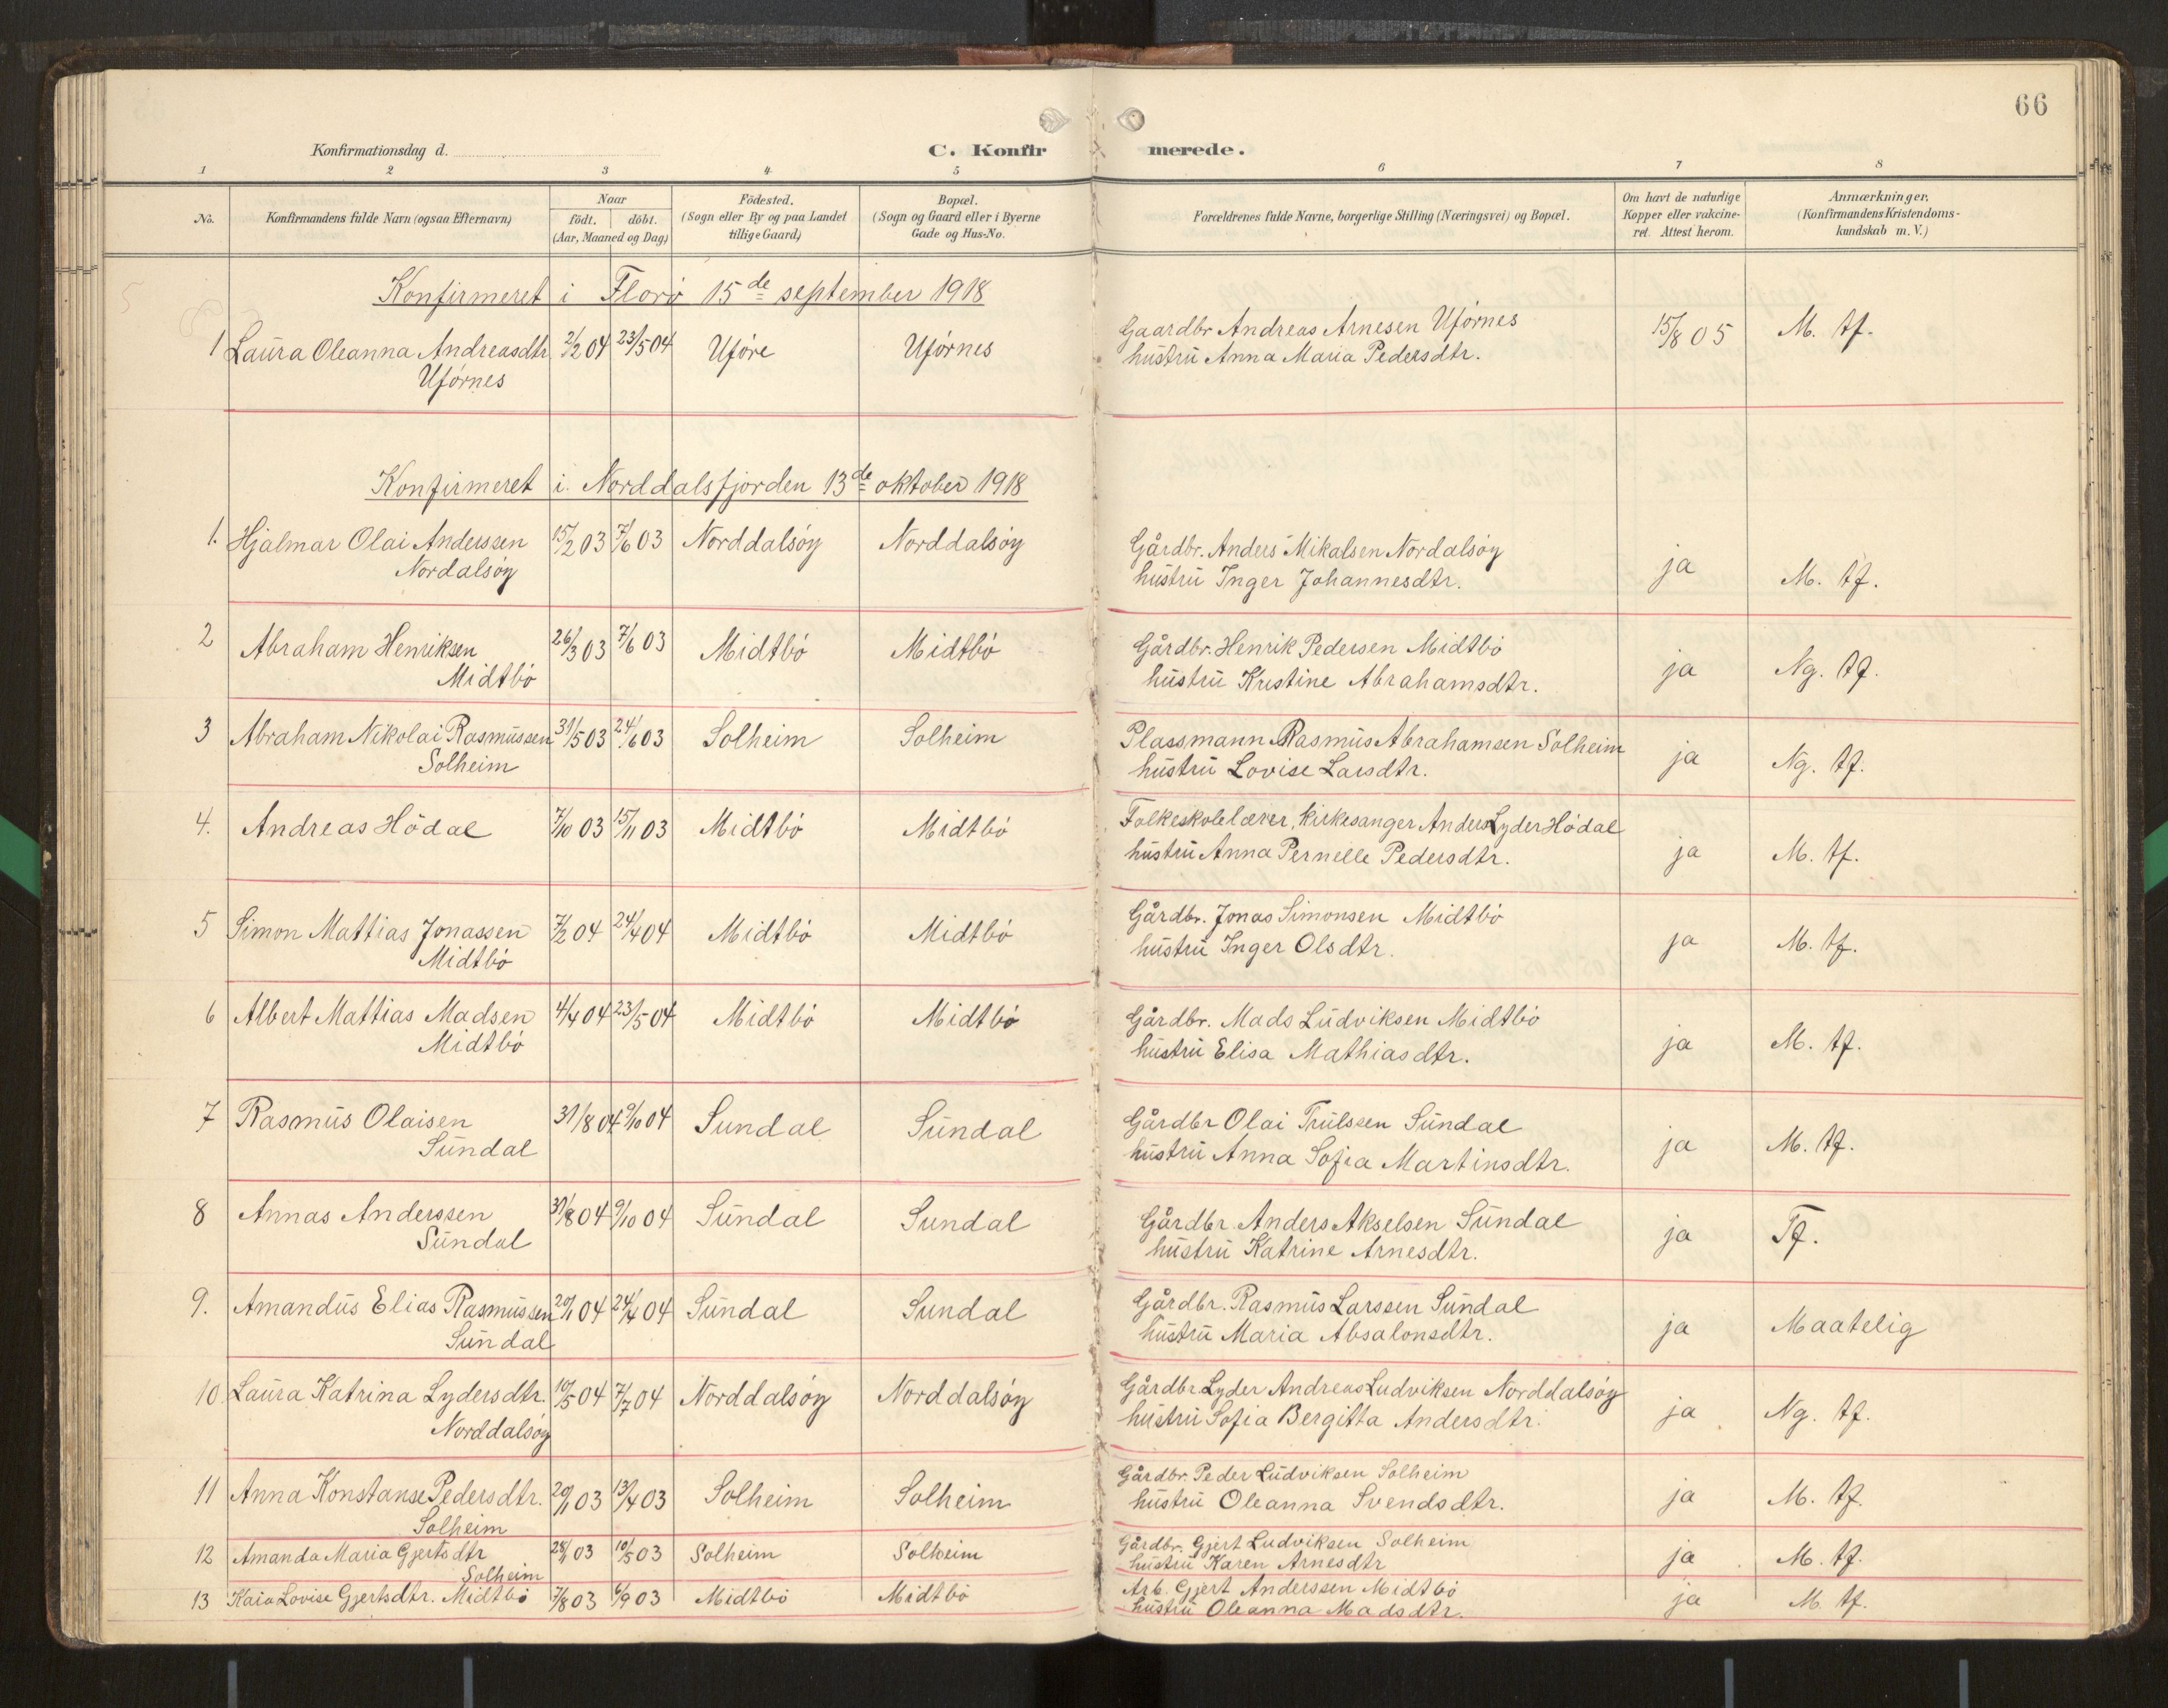 66
Konfirmationsdag d.
C. Konfirmerede.
1 2 3 4 5 6 7 8
No.
Konfirmandens fulde Navn (ogsaa Efternavn)
Naar
födt. döbt.
(Aar, Maaned og Dag)
Födested.
(Sogn eller By og paa Landet
tillige Gaard)
Bopæl.
(Sogn og Gaard eller i Byerne
Gade og Hus-No.
Forældrenes fulde Navne, borgerlige Stilling (Næringsvei) og Bopæl.
Om havt de naturlige
Kopper eller vakcine-
ret. Attest herom.
Anmærkninger.
(Konfirmandens Kristendoms-
kundskab m. V.)
Konfirmeret i Florö 15de september 1918
1 Laura Oleanna Andreasdtr. 2/2 04 23/5 04 Uföre Uförnes Gaardbr Andreas Arnesen Uförnes 15/8 05 M. tf.
Uförnes hustru Anna Maria Pedersdtr.
Konfirmeret i Norddalsfjorden 13de oktober 1918
1. Hjalmar Olai Anderssen 15/2 03 7/6 03 Norddalsöy Norddalsöy Gårdbr. Anders Mikalsen Nordalsöy ja M. tf.
Nordalsöy hustru Inger Johannesdtr.
2 Abraham Henriksen 26/3 03 7/6 03 Midtbö Midtbö Gårdbr. Henrik Pedersen Midtbö ja Ng. tf.
Midtbö hustru Kristine Abrahamsdtr.
3 Abraham Nikolai Rasmussen 31/5 03 24/6 03 Solheim Solheim Plassmann Rasmus Abrahamsen Solheim ja Ng. tf.
Solheim hustru Lovise Larsdtr.
4. Andreas Hödal 7/10 03 15/11 03 Midtbö Midtbö Folkeskolelærer, kirkesanger Anders Lyder Hödal ja M. tf.
hustru Anna Pernelle Pedersdtr.
5 Simon Mattias Jonassen 7/2 04 24/4 04 Midtbö Midtbö Gårdbr. Jonas Simonsen Midtbö ja M. tf.
Midtbö hustru Inger Olsdtr.
6 Albert Mattias Madsen 4/4 04 23/5 04 Midtbö Midtbö Gårdbr. Mads Ludviksen Midtbö ja M. tf.
Midtbö hustru Elisa Mathiasdtr.
7 Rasmus Olaisen 31/8 04 9/10 04 Sundal Sundal Gårdbr Olai Trulssen Sundal ja M. tf.
Sundal hustru Anna Sofia Martinsdtr.
8 Annas Anderssen 31/8 04 9/10 04 Sundal Sundal Gårdbr. Anders Akselsen Sundal ja Tf.
Sundal hustru Katrine Arnesdtr.
9. Amandus Elias Rasmussen 20/1 04 24/4 04 Sundal Sundal Gårdbr. Rasmus Larssen Sundal ja Maatelig
Sundal hustru Maria Absalonsdtr.
10 Laura Katrina Lydersdtr. 10/5 04 7/7 04 Norddalsöy Norddalsöy Gårdbr. Lyder Andreas Ludviksen Norddalsöy ja Ng. tf.
Norddalsöy hustru Sofia Bergitta Andersdtr.
11 Anna Konstanse Pedersdtr. 20/1 03 13/4 03 Solheim Solheim Gårdbr. Peder Ludviksen Solheim ja M. tf.
Solheim hustru Oleanna Svendsdtr.
12 Amanda Maria Gjertsdtr 28/1 03 10/5 03 Solheim Solheim Gårdbr. Gjert Ludviksen Solheim ja M. tf.
Solheim hustru Karen Arnesdtr
13 Kaia Lovise Gjertsdtr. Midtbö 7/8 03 6/9 03 Midtbö Midtbö Arb. Gjert Anderssen Midtbö ja M. tf.
hustru Oleanna Madsdtr.